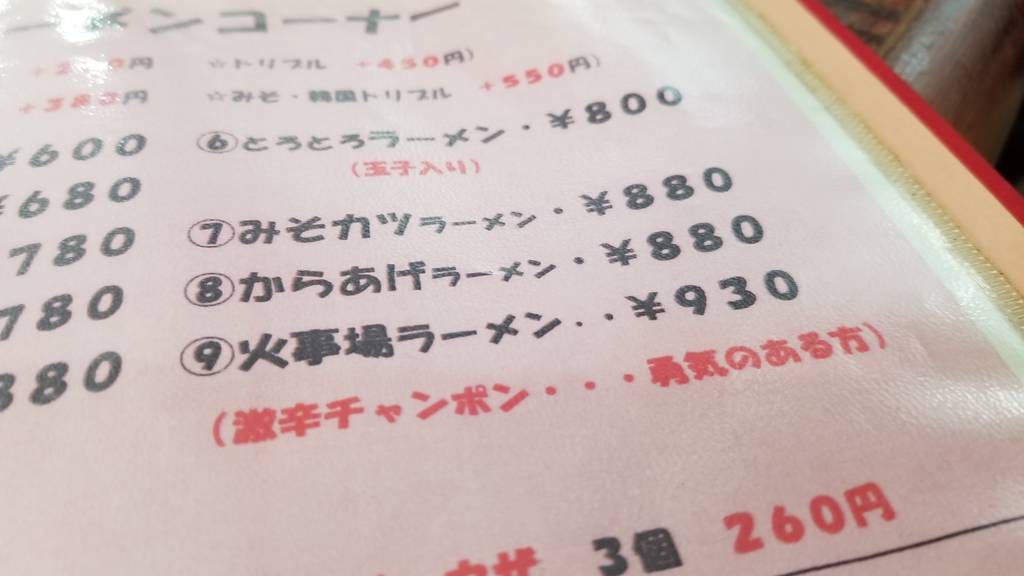 ーメンコーナー
☆トリプル +450円)
円
☆みそ・韓国トリプル +550円)
¥600
⑥とろとろラーメン・¥800
(玉子入り)
¥680
⑦みそカツラーメン・¥880
780
⑧からあげラーメン・¥880
780
⑨火事場ラーメン・・¥930
880
(激辛チャンポン・・・勇気のある方)
3個 260円